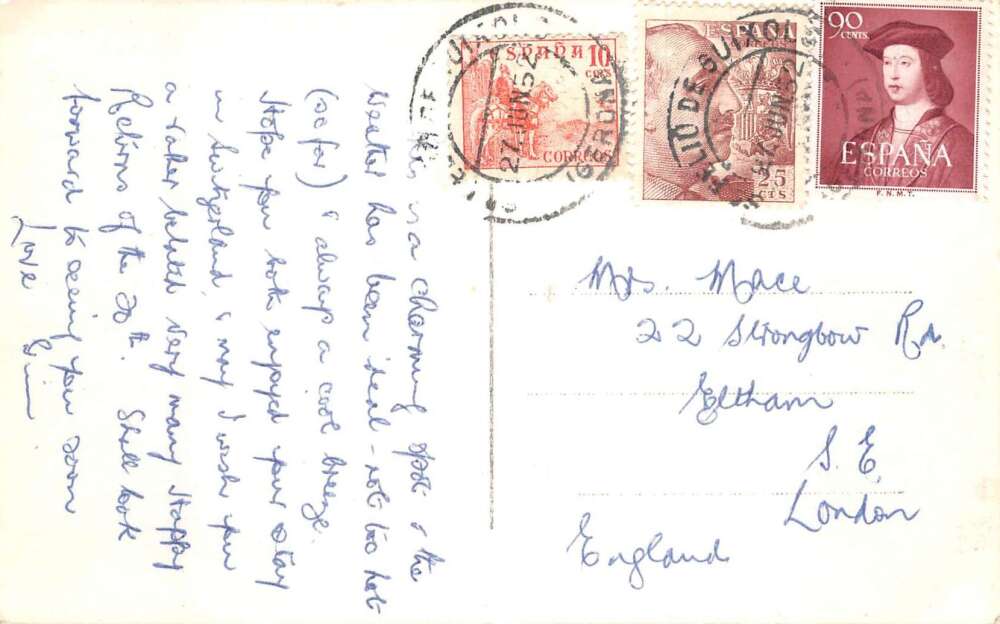 This is a charming spot & the
weather has been ideal - not too hot
(so far) & always a cool breeze.
Hope you both enjoyed your stay
in Switzerland, & may I wish you
a rather belated Very many Happy
Returns of the 20th. Shall look
forward to seeing you soon
Love
ESPAÑA 10
CTS
CORREOS
27.JUN.52
(GERONA)
ESPAÑA
CORREOS
25
CTS
FELIU DE GUIXOLS
27.JUN.52
90
CENTS.
ESPAÑA
CORREOS
F.N.M.T.
Mrs. Mace
22 Strongbow Rd.
Eltham
S.E.
London
England